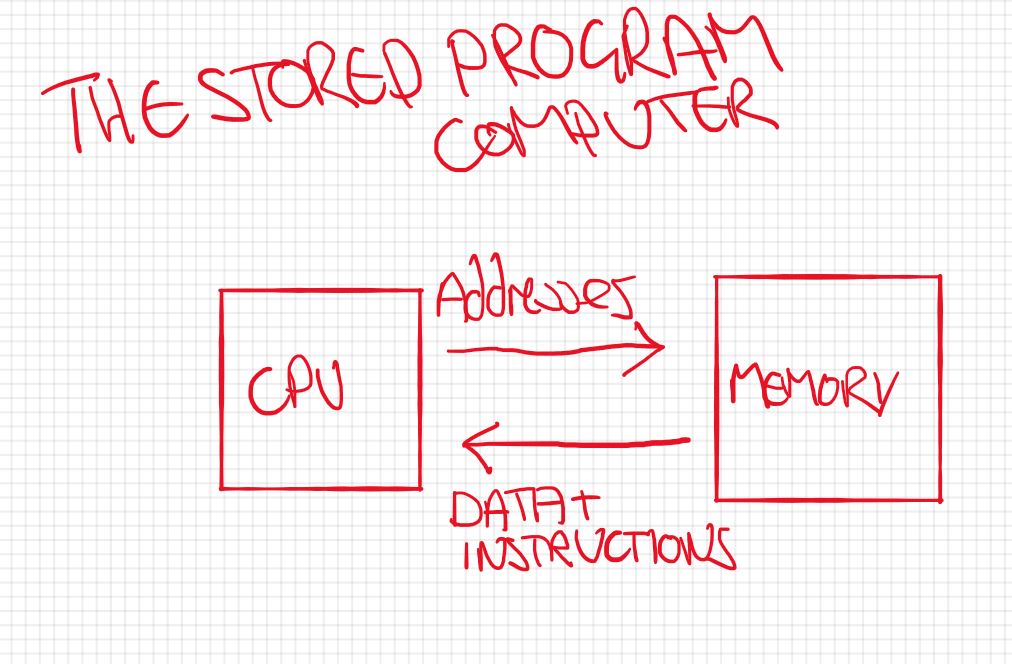 THE STORED PROGRAM
COMPUTER
Addresses
CPU
MEMORY
DATA+
INSTRUCTIONS